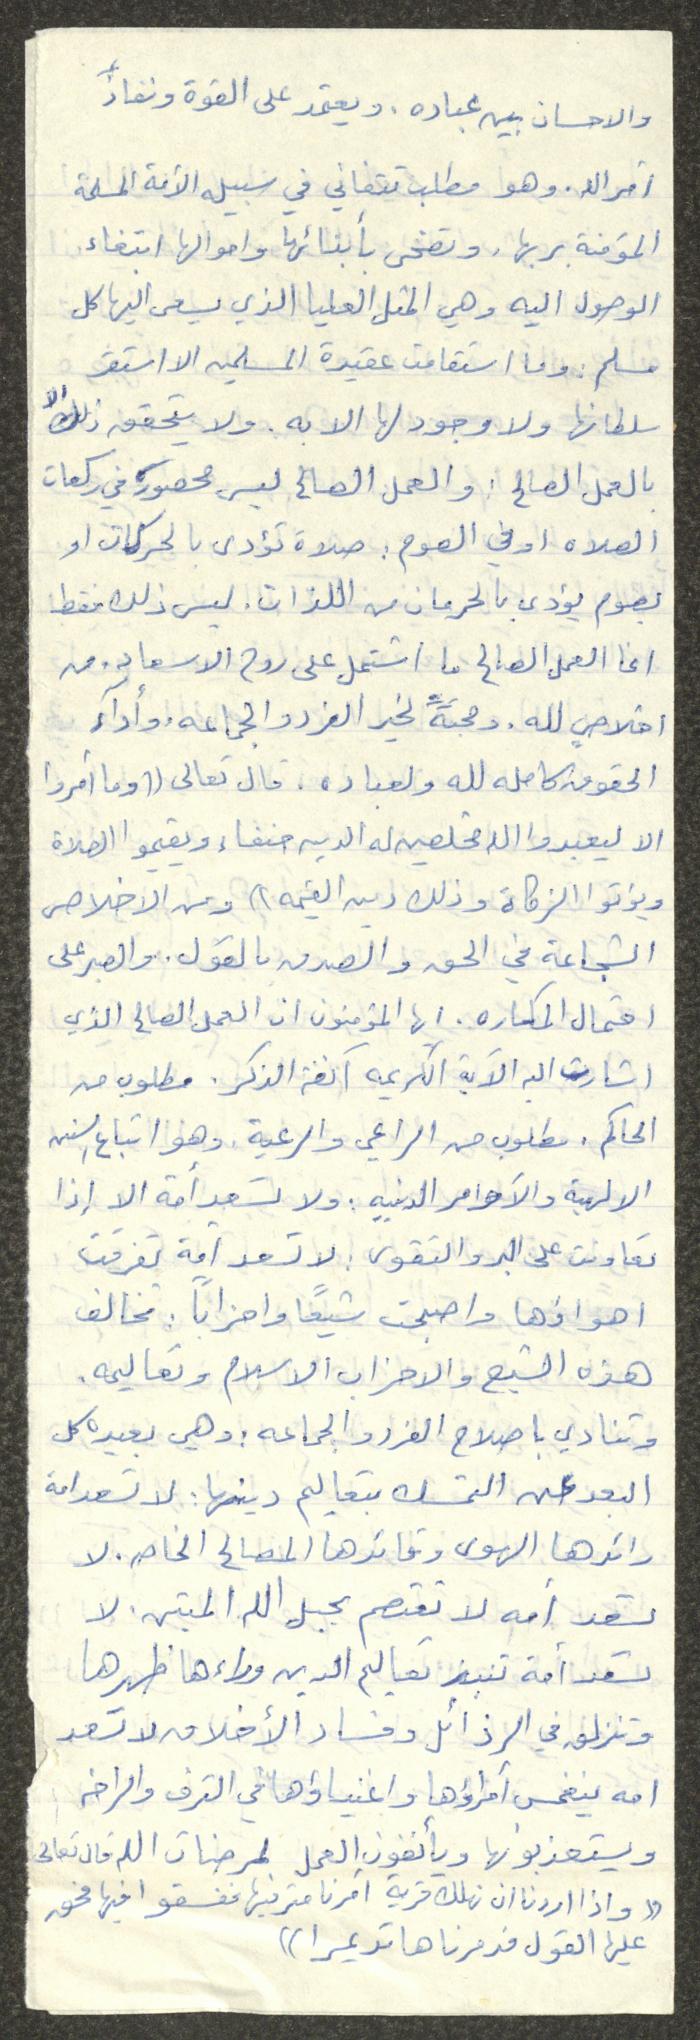 والاحسان بين عباده. ويعتمد على القوة ونفاذ
أمر الله. وهو مطلب تتفانى في سبيله الأمة المسلمة
المؤمنة بربها. وتضحى بأبنائها واموالها ابتغاء
الوصول اليه وهي المثل العليا الذي يسعى اليها كل
مسلم: وما استقامت عقيدة المسلمين الا استقر
سلطانها ولا وجود لها الا به. ولا يتحقق ذلك الا
بالعمل الصالح: والعمل الصالح ليس محصورة في ركعات
الصلاه او في الصوم: صلاة تؤدى بالحركات او
بصوم يؤدى بالحرمان من اللذات. ليس ذلك فقط
انما العمل الصالح ما اشتمل على روح الاسلام. من
اخلاصٍ لله. ومحبةً لخير الفرد والجماعه. وأداء
الحقوق كامله لله ولعباده. قال تعالى ((وما أمروا
الا ليعبدوا الله مخلصين له الدين حنفاء ويقيموا الصلاة
ويؤتوا الزكاة وذلك دين القيمه)) ومن الاخلاص
الشجاعة في الحق والصدق بالقول. والصبر على
احتمال المكاره. ايها المؤمنون ان العمل الصالح الذي
اشارت اليه الآية الكريمه آنفة الذكر. مطلوب من
الحاكم. مطلوب من الراعي والرعية. وهو اتباع السنن
الالهية والأوامر الدينيه: ولا تسعد أمة الا إذا
تعاونت على البر والتقوى: لا تسعد أمة تفرقت
اهواؤها واصبحت شيعًا واحزابًا: تخالف
هذه الشيع والاحزاب الاسلام وتعاليمه.
وتنادي باصلاح الفرد والجماعه: وهي بعيده كل
البعد عن التمسك بتعاليم دينها: لا تسعد امة
رائدها الهوى وقائدها المصالح الخاصه. لا
تسعد أمه لا تعتصم بحبل الله المتين. لا
تسعد أمة تنبذ تعاليم الدين وراءها ظهرها
وتنزلق في الرذائل وفساد الأخلاق لا تسعد
امه ينغمس أمراؤها واغنياؤها في الترف والراحه
ويستعذبونها ويأنفون العمل لمرضات الله قال تعالى
((واذا اردنا ان نهلك قرية أمرنا مترفيها ففسقوا فيها فحق
عليها القول فدمرناها تدميرا))